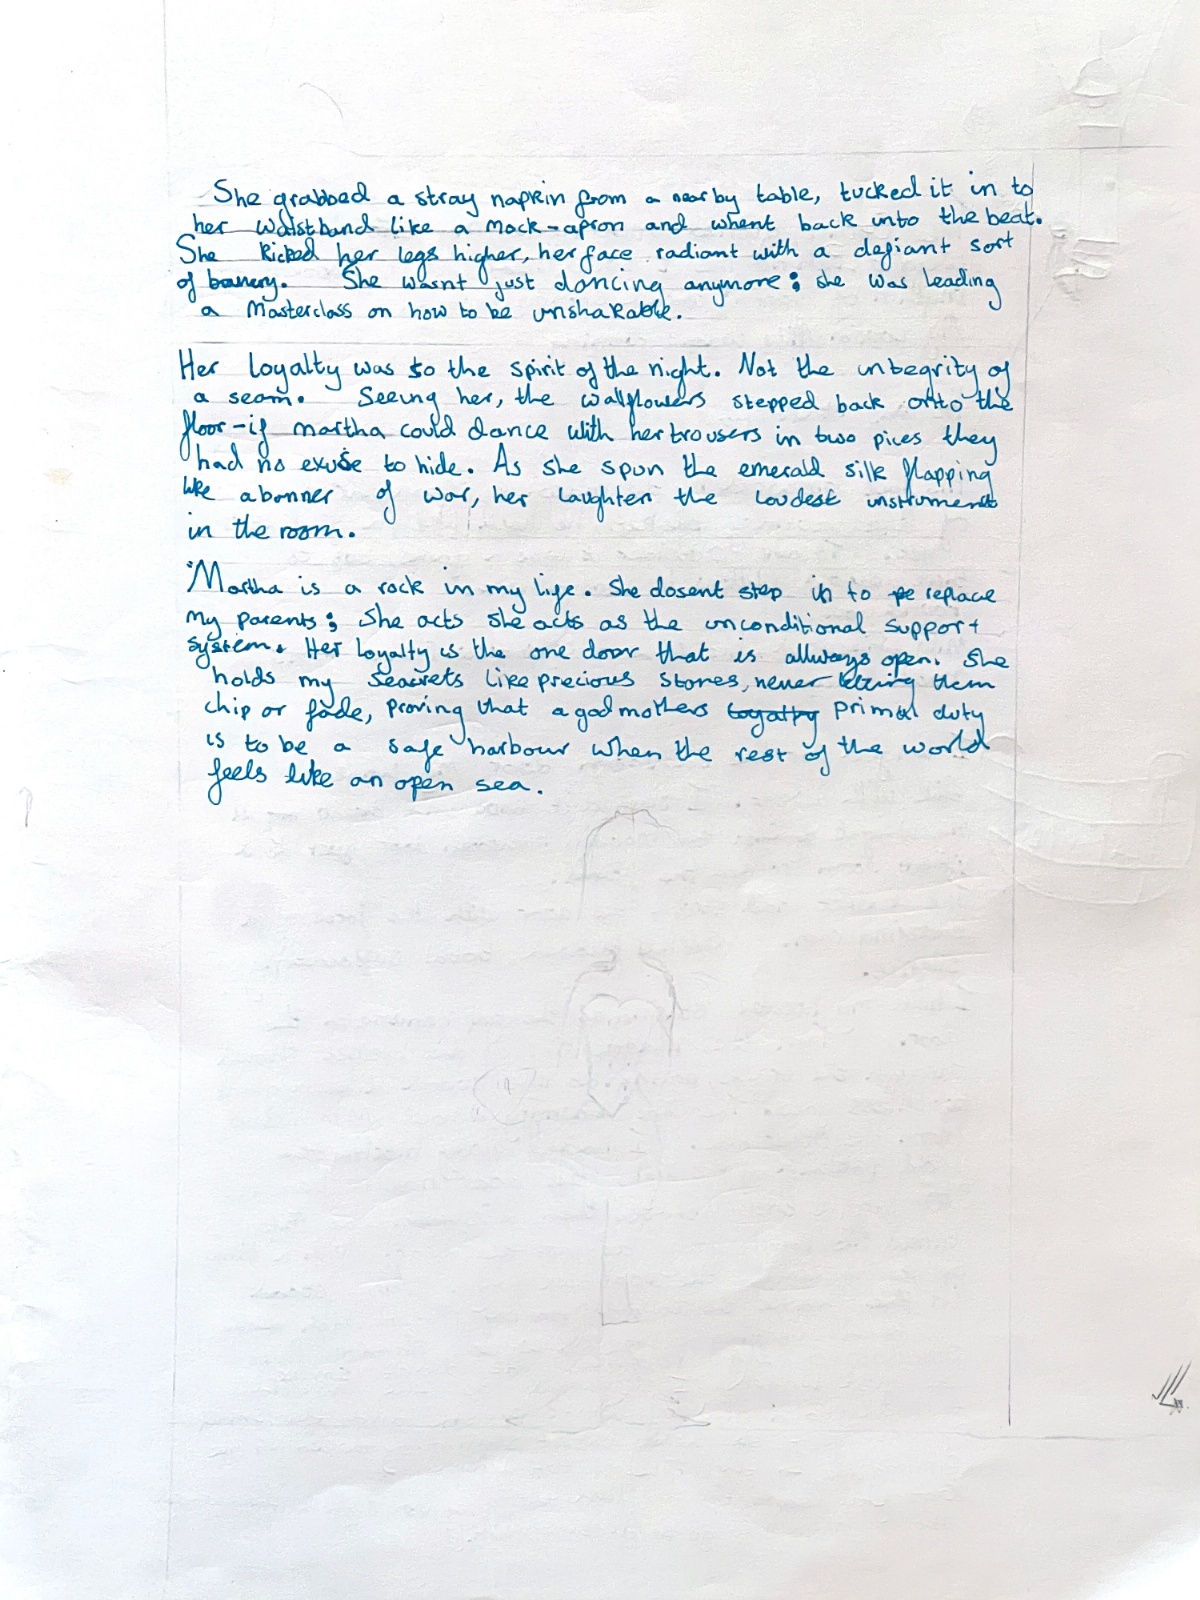 She grabbed a stray napkin from a near by table, tucked it in to
her waistband like a mock-apron and whent back into the beat.
She kicked her legs higher, her face radiant with a defiant sort
of bravery. She wasnt just dancing anymore; she was leading
a Masterclass on how to be unshakable.
Her loyalty was to the spirit of the night. Not the integrity of
a seam. Seeing her, the wallflowers stepped back onto the
floor-if martha could dance with her trousers in two pices they
had no exuse to hide. As she spun the emerald silk flapping
like a banner of war, her laughter the loudest instrument
in the room.
Martha is a rock in my life. She dosent step in to replace
my parents; she acts she acts as the unconditional support
system. Her loyalty is the one door that is allways open. She
holds my seacrets like precious stones, never letting them
chip or fade, proving that a godmothers loyalty primal duty
is to be a safe harbour when the rest of the world
feels like an open sea.